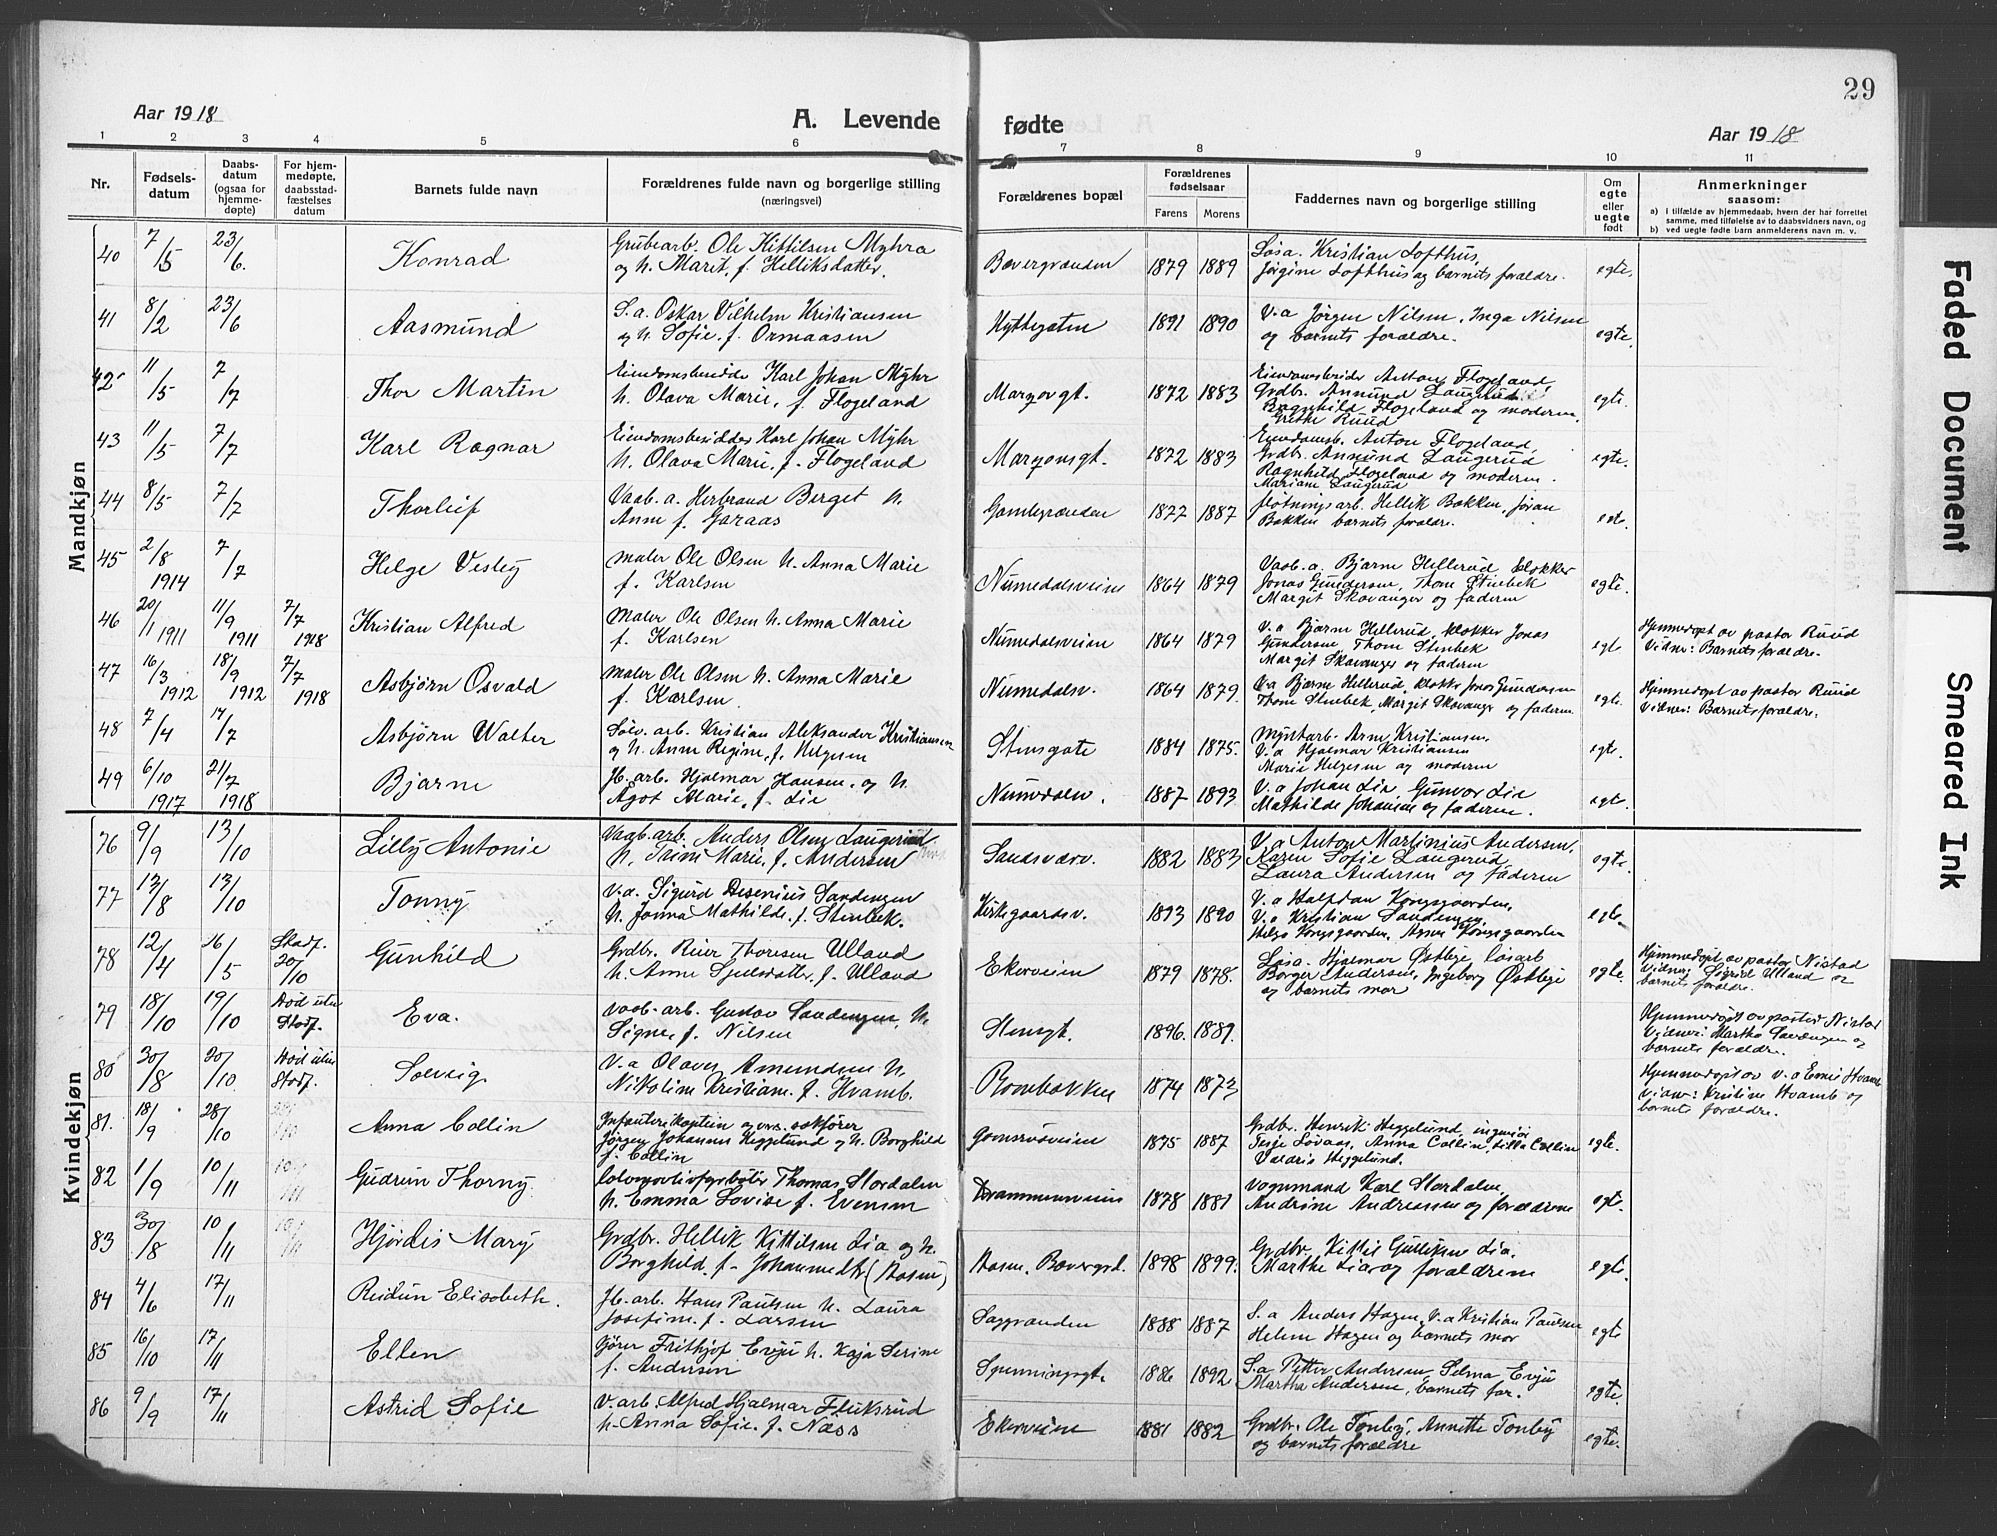 29
Aar 1918
A. Levende fødte
Aar 1918
1 2 3 4 5 6 7 8 9 10 11
Nr.
Fødselsdatum
Daabsdatum (ogsaa for hjemmedøpte)
For hjemmedøpte, daabsstadfæstelses datum
Barnets fulde navn
Forældrenes fulde navn og borgerlige stilling (næringsvei)
Forældrenes bopæl
Forældrenes fødselsaar
Farens Morens
Faddernes navn og borgerlige stilling
Om egte eller uegte født
Anmerkninger saasom:
a) i tilfælde av hjemmedaab, hvem der har forrettet samme, med tilføielse av to daabsvidners navn, og
b) ved uegte fødte barn anmelderens navn m. v.
Mandkjøn
40 7/5 23/6. Konrad Grubearb. Ole Kittilsen Myhra Bævergrænden 1879 1889 Løsa. Kristian Lofthus, egte.
og h. Marit, f. Helliksdatter. Jørgine Lofthus og barnets forældre.
41 8/2 23/6 Aasmund S.a. Oskar Vilhelm Kristiansen Hyttegaten 1891 1890 V.a Jörgen Nilsen, Inga Nilsen egte.
og h. Sofie. f. Ormaasen og barnets forældre.
42 11/5 7/7 Thor Martin Eiendomsbesidder Karl Johan Myhr 1872 1883 Eiendomsbesidder Anton Flogeland, egte.
h. Olava Marie, f. Flogeland Grdbr. Anmund Laugerud
Ragnhild Flogeland og moderen.
Grethe Ruud
43 11/5 7/7 Karl Ragnar Eiendomsbesidder Karl Johan Myhr 1872 1883 Eiendomsb. Anton Flogeland, egte.
h. Olava Marie, f. Flogeland Grdbr. Anmund Laugerud
Ragnhild Flogeland og moderen.
Mariane Laugerud
44 8/5 7/7 Thorleif Vaab. a. Herbrand Berget h. Gamlegrænden 1877 1887 fløtningsarb. Hellik Bakken, Jøran egte.
Anne f. Garaas Bakken barnets forældre.
45 2/8 1914 7/7 Helge Vesley Maler Ole Olsen h. Anna Marie Numedalsveien 1864 1879 Vaab. a. Bjarne Hellerud klokker egte.
f. Karlsen Jonas Gundersen, Thom Stenbek
Margit Skavanger og faderen
46 20/1 1911 11/9 1911 7/7 1918 Kristian Alfred Maler Ole Olsen h. Anna Marie Numedalsveien 1864 1879 V.a Bjarne Hellerud, klokker Jonas egte Hjemmedøpt av pastor Ruud
f. Karlsen Gundersen, Thom Stenbek Vidner: Barnets forældre.
Margit Skavanger og faderen
47 16/3 1912 18/9 1912 7/7 1918 Asbjørn Osvald Maler Ole Olsen h. Anna Marie Numedalsv. 1864 1879 V.a Bjarne Hellerud, klokk. Jonas Gundersen egte. Hjemmedøpt av pastor Ruud
f. Karlsen. Thom Stenbek, Margit Skavanger og faderen Vidner: Barnets forældre.
48 7/4 14/7 Asbjørn Walter Sølv. arb. Kristian Aleksander Kristiansen Stensgate 1884 1875. Myntarb. Arne Kristiansen, egte.
og h. Anne Regine, f. Helgesen V.a Hjalmar Kristiansen
Marie Helgesen og moderen
49 6/10 1917 21/7 1918 Bjarne Jb. arb. Hjalmar Hansen, og h. Numedalsv. 1887 1893 V.a Johan Lia, Gunvor Lia egte.
Agot Marie, f. Lie Mathilde Johansen og faderen.
Kvindekjøn
76 9/9 13/10 Lilly Antonie Vaab. arb. Anders Olsen Laugerud Sandsværv. 1882 1883 V.a Anton Martinius Andersen. egte.
h. Trine Marie, f. Andersen Karen Sofie Laugerud
Laura Andersen og faderen
77 13/8 13/10 Tonny V.a. Sigurd Desenius Sandengen Kirkegaardsv. 1893 1890 V.a Halfdan Kongsgaarden, egte.
h. Jonna Mathilde. f. Stenbek. V.a Kristian Sandengen,
Helga Kongsgaarden, Agnes Kongsgaarden
78 12/4 26/5 Stadf. 20/10 Gunhild Grdbr. Reier Thoresen Ulland Ekerveien 1879 1878. Løsa. Hjalmar Østbye, løsarb egte. Hjemmedøpt av pastor Nistad
h. Anne Gjulsdatter, f. Ulland Borger Andersen, Ingeborg Østbye Vidner: Sigrid Ulland og
og barnets mor barnets forældre.
79 18/10 19/10 Død uten Stadf. Eva. Vaab. arb. Gustav Sandengen, h. Stensgt. 1896. 1889. Hjemmedøpt av pastor Nistad
Signe, f. Nilsen Vidner: Martha Sandengen og
barnets forældre.
80 30/8 20/10 Død uten Stadf. Solveig V.a Olaves Amundsen h. Rombakken 1874 1873 Hjemmedøpt av V.a Emil Hvamb
Nikoline Kristiane. f. Hvamb. Vidner: Kristine Hvamb og
barnets forældre.
81. 18/9 28/10 Anna Collin Infanterikaptein og overs. sakfører Gomsrudveien 1875 1887 Grdbr. Henrik Heggelund, ingeniør egte.
Jørgen Johannes Heggelund og h. Borghild Terje Lovaas, Anna Collin, Lilla Collin
f. Collin Valdris Heggelund.
82 1/9 10/11 Gudrun Thorny Lokomotivfyrbøter Thomas Stordalen Drammensveien 1878 1881 Vognmand Karl Stordalen egte.
h. Emma Lovise f. Evensen Andrine Andreassen og forældrene
83 30/8 10/11 Hjørdis Mary Grdbr. Hellik Kittilsen Lia og h. Aasen, Bævergrd. 1898 1899. Grdbr. Kittil Gulliksen Lia. egte.
Borghild f. Johannesdtr. (Aasen) Marthe Lia og forældrene
84 4/6 17/11 Reidun Elisabeth. Jb. arb. Hans Paulsen h. Laura Saggrænden 1888 1887 S.a Anders Hagen, V.a Kristian Paulsen egte
Josefine. f. Larsen Helene Hagen og barnets mor
85 16/10 17/11 Ellen Gjører Frithjof Evju h. Kaja Serine Spenningsgt. 1886 1892 S.a Petter Andersen, Selma Evju egte.
f. Andersen Martha Andersen, barnets far.
86 9/9 17/11 Astrid Sofie V. arb. Alfred Hjalmar Fluksrud Ekerveien 1881 1882 Grdbr. Ole Tonby, Annette Tonby egte.
h. Anna Sofie. f. Næss og barnets forældre
Faded Document
Smeared Ink